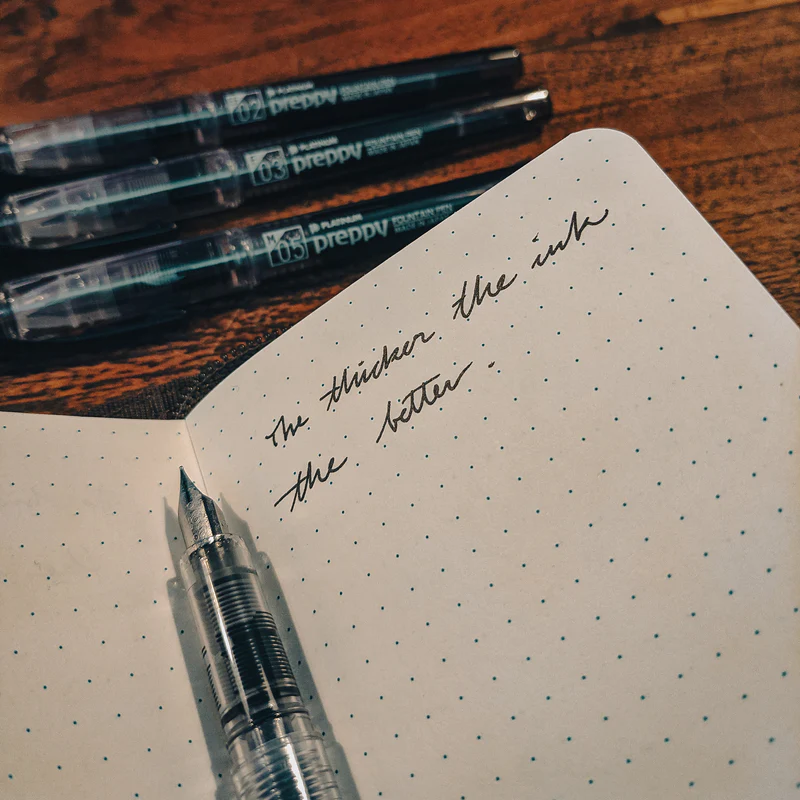 02 PLATINUM preppy FOUNTAIN PEN MADE IN JAPAN
03 PLATINUM preppy FOUNTAIN PEN MADE IN JAPAN
05 PLATINUM preppy FOUNTAIN PEN MADE IN JAPAN
The thicker the ink
the better.